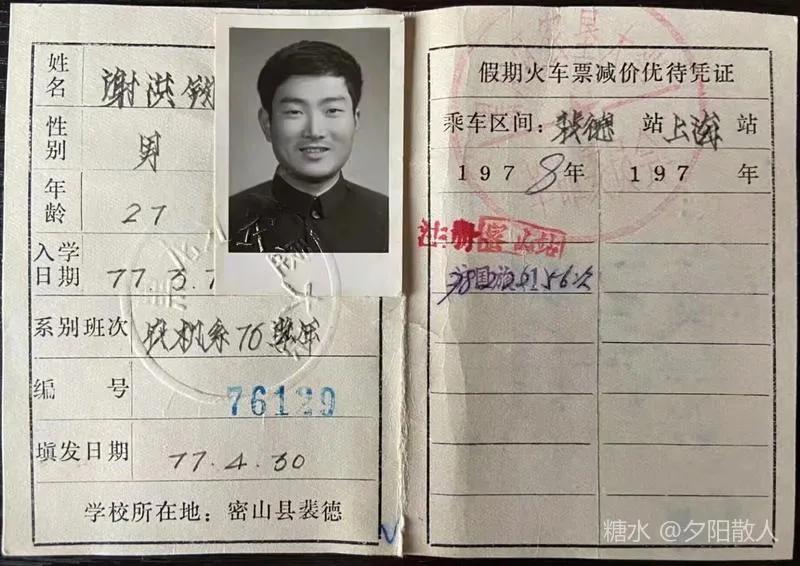 姓名 谢洪
性别 男
年龄 27
入学日期 77.3.7
系别班次 农机系76
编号 76129
填发日期 77.4.30
学校所在地：密山县裴德
假期火车票减价优待凭证
乘车区间：裴德 站 上海 站
1978年 197 年
注册 密山站
糖水 @夕阳散人